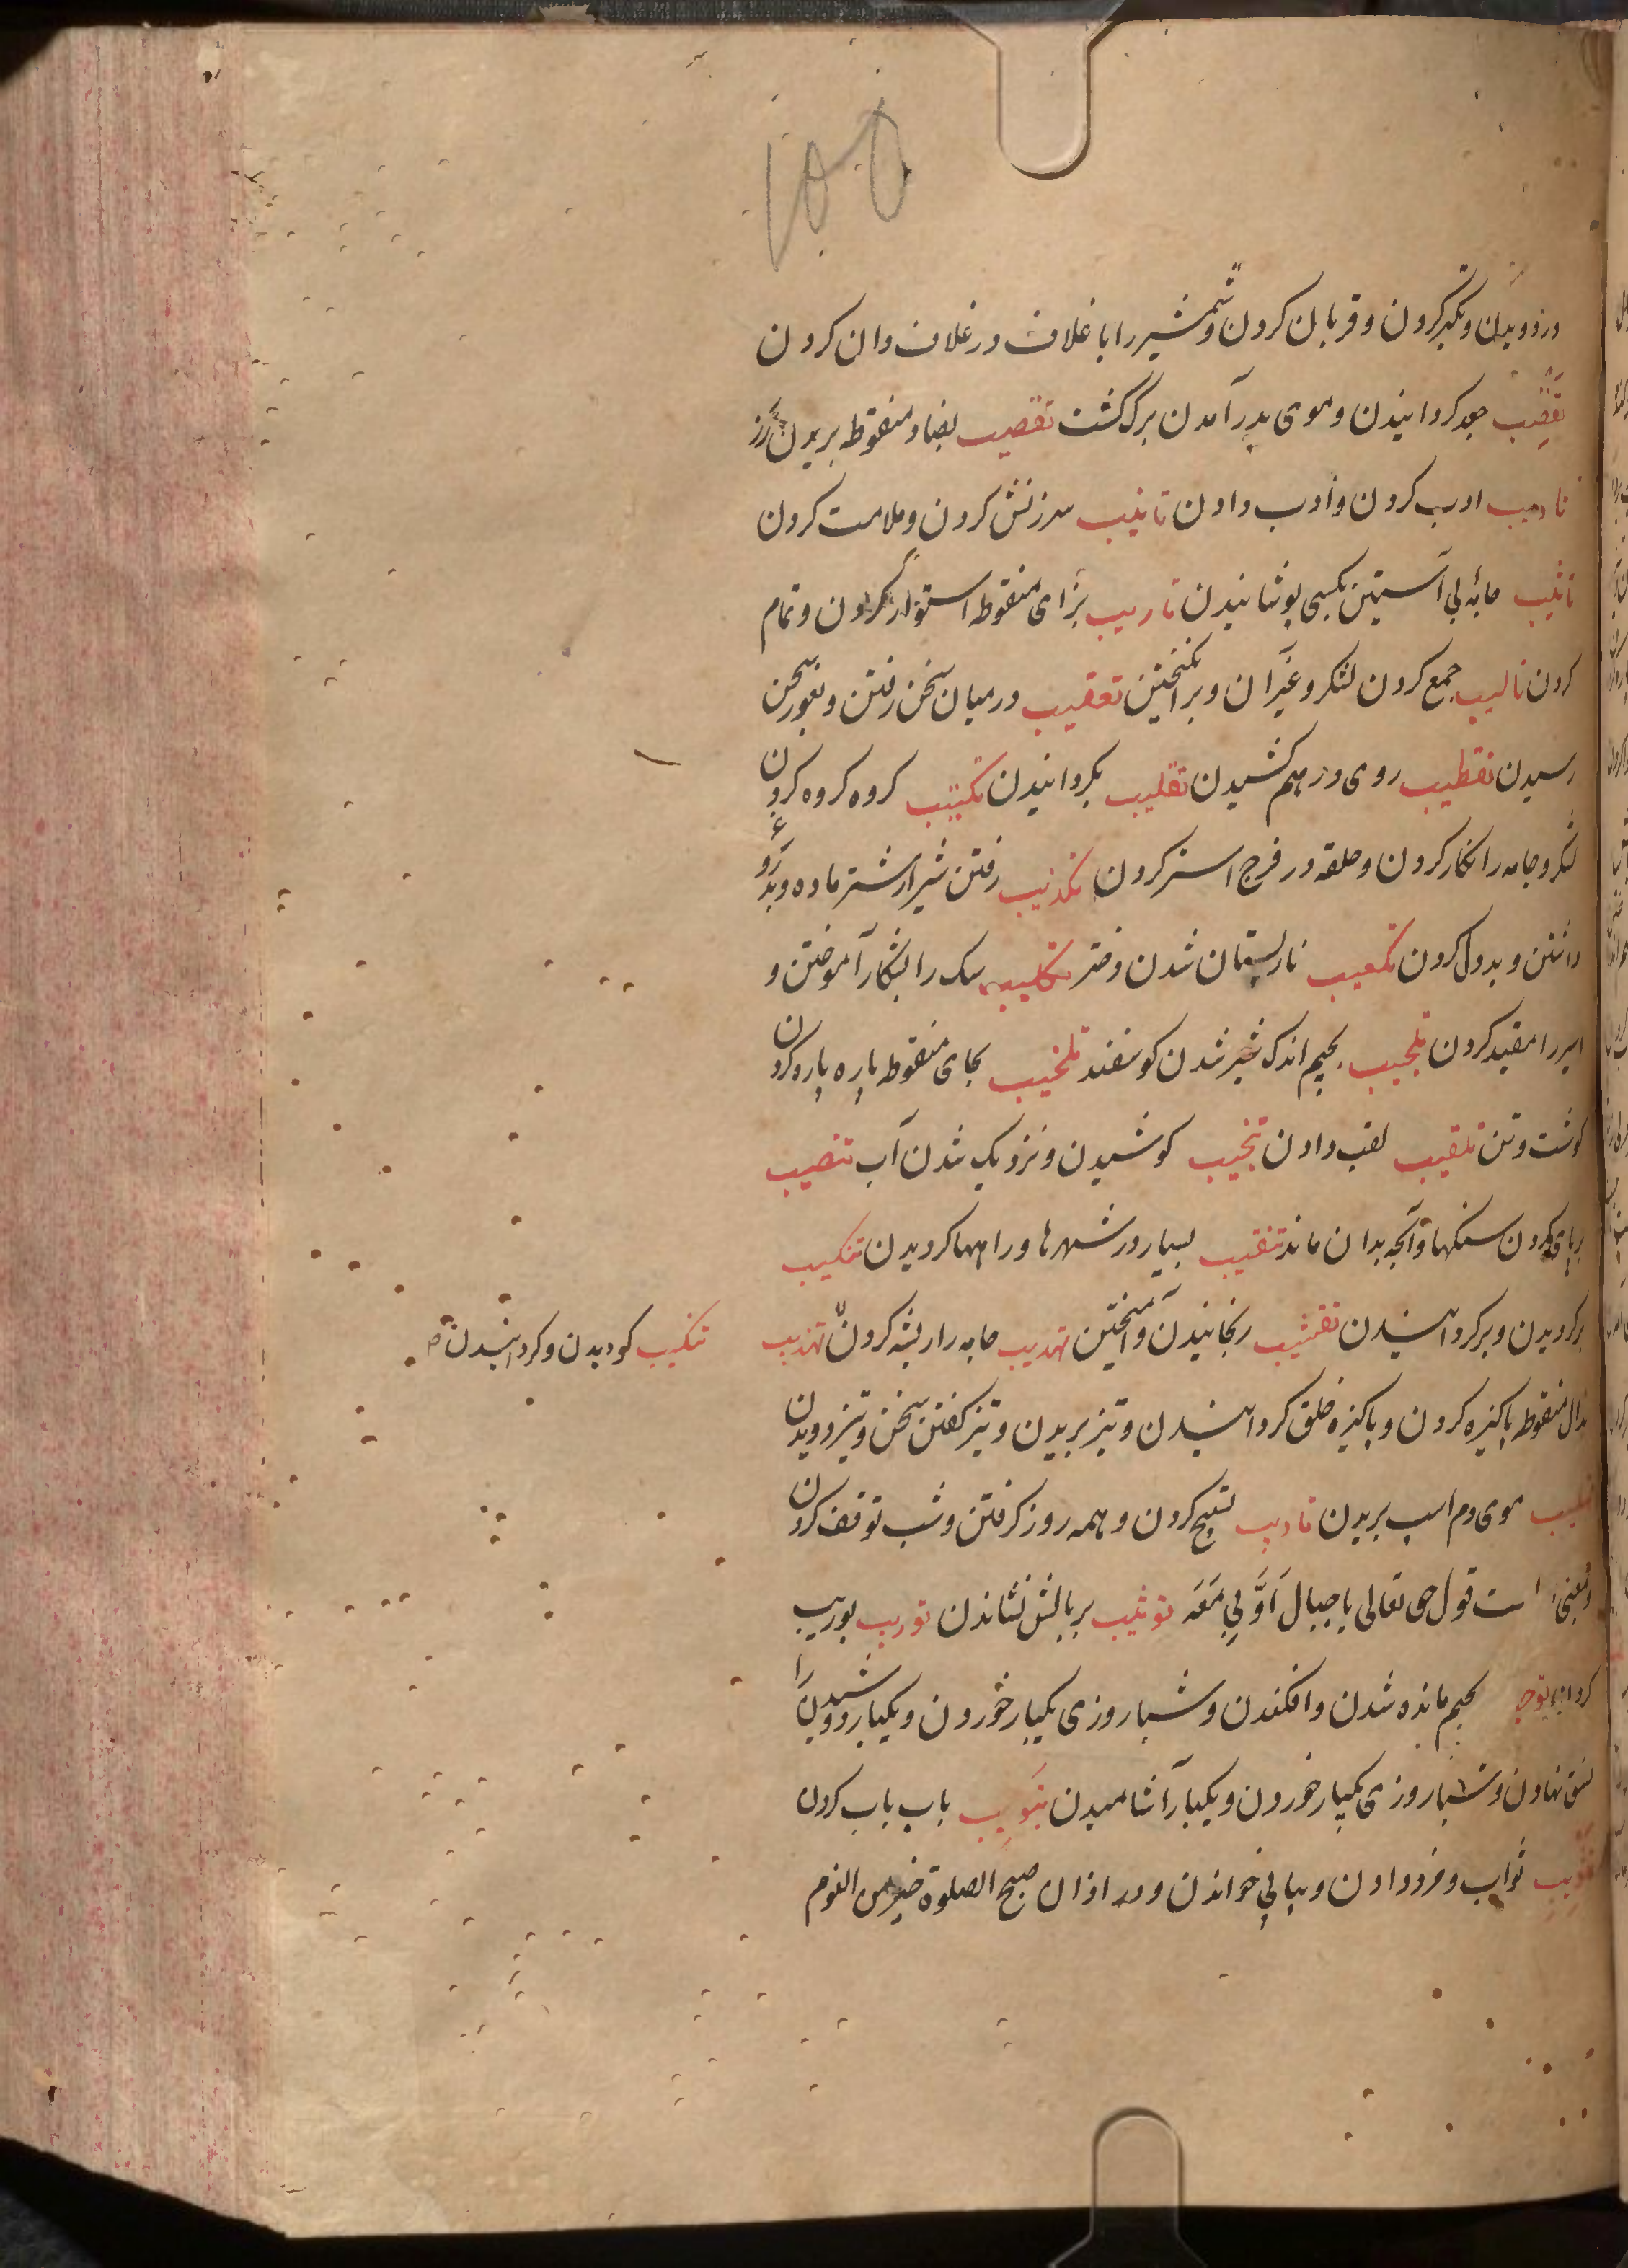 ۱۵۵
در دویدن و تکبر کردن و قربان کردن و شمشیر را با غلاف در غلاف دان کردن
تقصیب جعد کردانیدن و موی بدر آمدن برک کشت تقضیب بضاد منقوطه بریدن رز
تادیب ادب کردن و ادب دادن تانیب سرزنش کردن و ملامت کردن
تاتیب جامه بی آستین بکسی پوشانیدن تاریب برای منقوطه استوار کردن و تمام
کردن تالیب جمع کردن لشکر و غیر آن و برانکیختن تعقیب در میان سخن رفتن و بغور سخن
رسیدن تقطیب روی درهم کشیدن تقلیب بکردانیدن تکتیب کروه کروه کردن
لشکر و جامه را نکار کردن و حلقه در فرج استر کردن تکذیب رفتن شیر از شتر ماده و بدروغ
داشتن و بددل کردن تکعیب نار پستان شدن دختر تکلیب سک را بشکار آموختن و
اسیر را مقید کردن تلجیب بجیم اندک شیر شدن کوسفند تلخیب بخای منقوطه پاره پاره کردن
کوشت و تن تلقیب لقب دادن تنحیب کوشیدن و نزدیک شدن آب تنصیب
برپای کردن سنکها و آنچه بدان ماند تنقیب بسیار در شهرها و راهها کردیدن تنکیب
برکردیدن و برکردانیدن تقشیب رنجانیدن و آمیختن تهدیب جامه را ریشه کردن تهذیب
تنکیب کردیدن و کردانیدن
بذال منقوطه پاکیزه کردن و پاکیزه خلق کردانیدن و تیز بریدن و تیز کفتن سخن و تیز دویدن
تهلیب موی دم اسب بریدن تاویب تسبیح کردن و همه روز کرفتن و شب توقف کردن
و بمعنی است قول حق تعالی یا جبال اوبی معه توثیب بر بالش نشاندن توریب بوریب
بجیم مانده شدن و افکندن و شبا روزی یکبار خوردن و یکبار دوشیدن را
نسق نهادن و شبا روزی یکبار خوردن و یکبار آشامیدن تبویب باب باب کردن
تثویب ثواب و مزد دادن و پیاپی خواندن و در اذان صبح الصلوة خیر من النوم